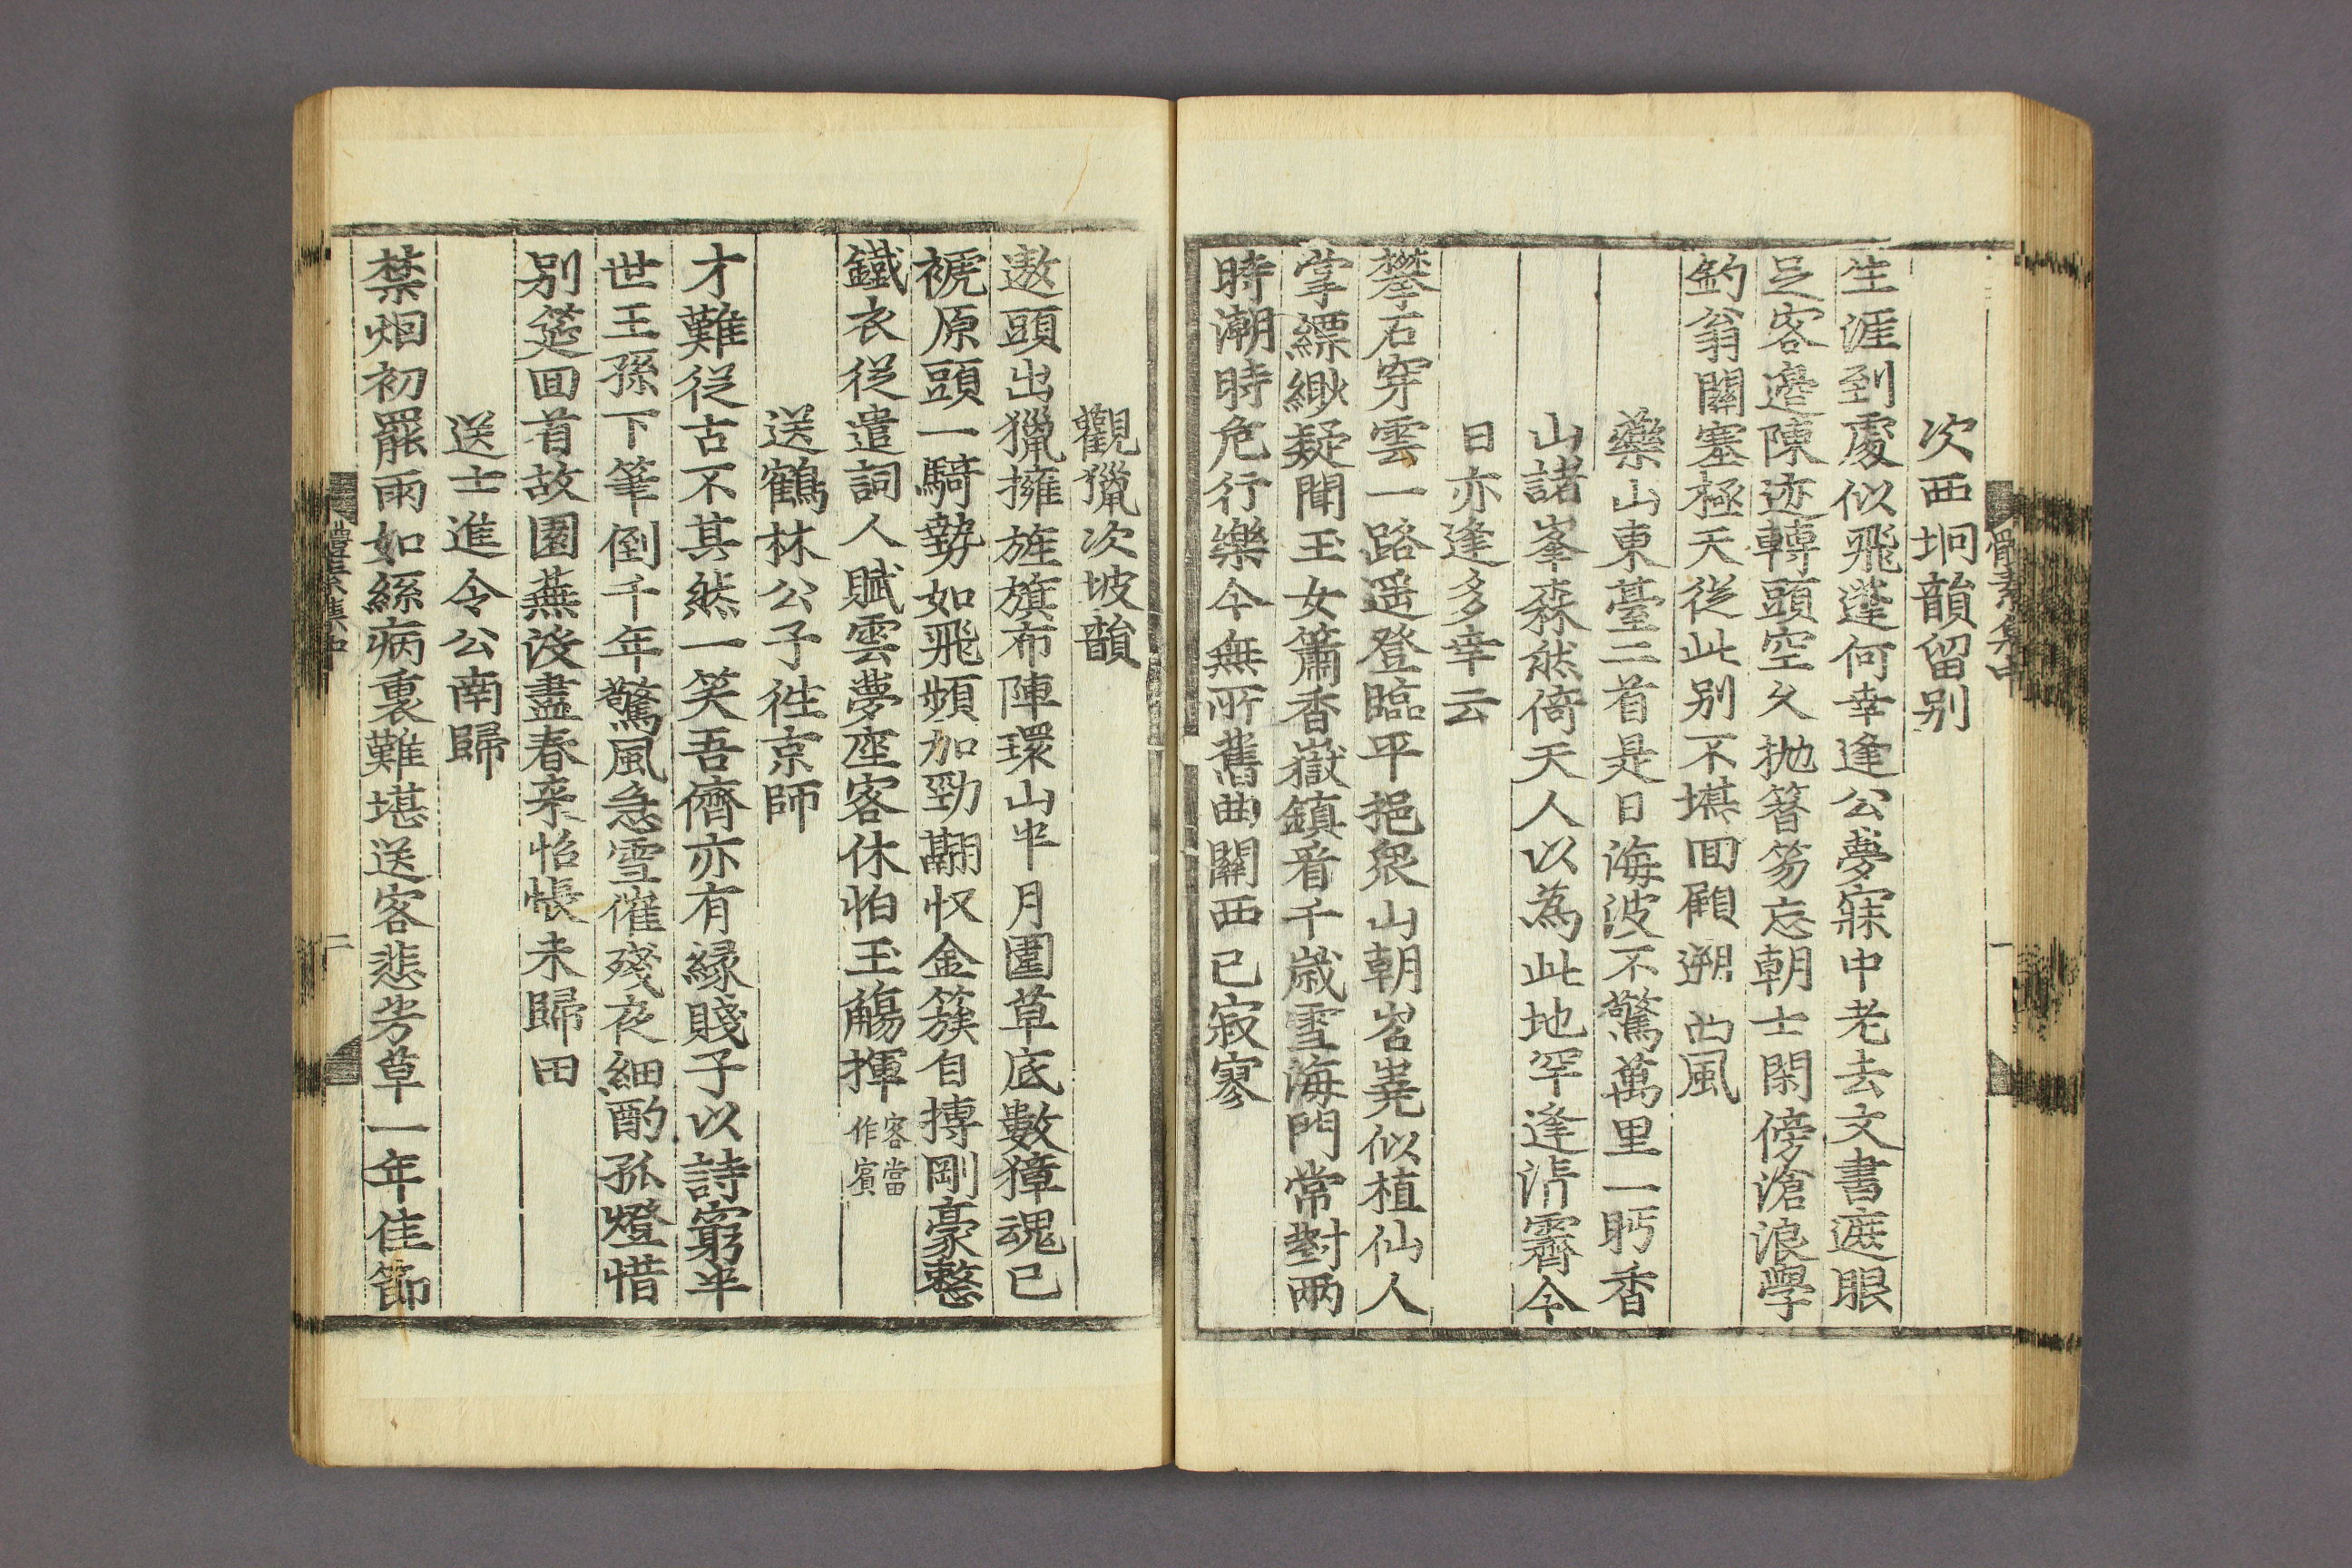 次西坰韻留别
生涯到處似飛蓬何幸逢公夢寐中老去文書遮眼
足客邊陳迹轉頭空久抛簪笏忘朝士閑傍滄浪學
釣翁關塞極天從此别不堪回顧遡西風
藥山東臺二首是日海波不驚萬里一眄香
山諸峯森然倚天人以為此地罕逢淸霽今
日亦逢多幸云
攀石穿雲一路遥登臨平挹衆山朝岧嶤似植仙人
掌縹緲疑聞玉女簫香嶽鎮看千歲雪海門常對兩
時潮時危行樂今無所舊曲關西已寂寥
觀獵次坡韻
遨頭出獵擁旌旗布陣環山半月圍草底數獐魂已
褫原頭一騎勢如飛頻加勁翮收金簇自摶剛豪整
鐵衣從遣詞人賦雲夢座客休怕玉觴揮 客當作賓
送鶴林公子徃京師
才難從古不其然一笑吾儕亦有緣賤子以詩窮半
世王孫下筆倒千年驚風急雪催殘夜細酌孤燈惜
别筵回首故園蕪沒盡春来怊悵未歸田
送士進令公南歸
禁烟初罷雨如絲病裏難堪送客悲芳草一年佳節
體素集中 二
體素集中 一